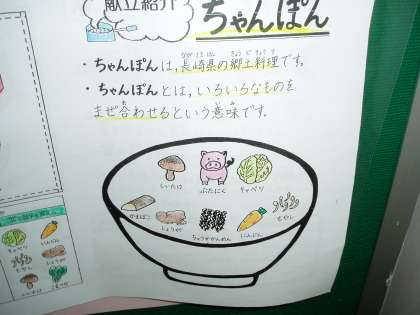 献立紹介
ちゃんぽん
・ちゃんぽんは、長崎県の郷土料理です。
・ちゃんぽんとは、いろいろなものを
まぜ合わせるという意味です。
しいたけ
ぶたにく
キャベツ
かまぼこ
しょうが
ちゅうかめん
にんじん
もやし